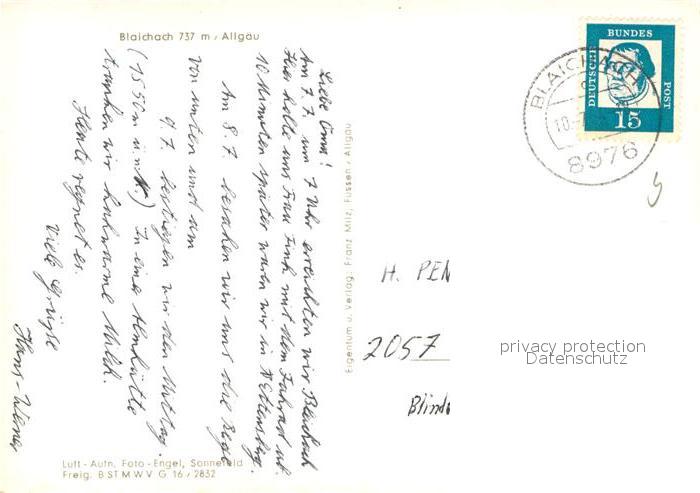 Blaichach 737 m, Allgäu
Liebe Oma!
Am 7.7. um 7 Uhr erreichten wir Blaichach
Hier holte uns Frau Fink mit dem Fahrrad ab.
10 Minuten später waren wir in Ettensberg.
Am 8.7. besahen wir uns die Berge
von unten und am
9.7. bestiegen wir den Mittag.
(1540 m ü.N.) In einer Almhütte
tranken wir kuhwarme Milch.
Heute regnet es.
Viele Grüße
Hans-Werner
Luft-Aufn. Foto-Engel, Sonnefeld
Freig. B ST M W V G 16 / 2832
Eigentum u. Verlag: Franz Milz, Füssen/Allgäu
DEUTSCHE
BUNDES
POST
15
BLAICHACH
10.-7.
8976
H. PEN
2057
privacy protection
Datenschutz